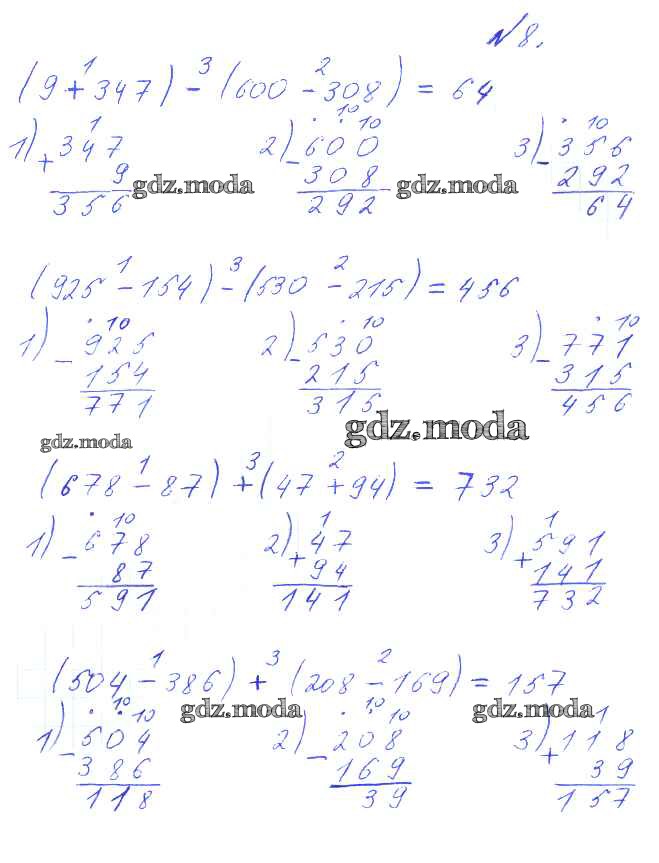 №8.
1 3 2
(9 + 347) - (600 - 308) = 64
1 . . 10 10 . 10
1) + 347 2) - 600 3) - 356
9 308 292
gdz.moda gdz.moda
356 292 64
1 3 2
(925 - 154) - (530 - 215) = 456
. 10 . 10 . 10
1) - 925 2) - 530 3) - 771
154 215 315
771 315 456
gdz.moda gdz.moda
1 3 2
(678 - 87) + (47 + 94) = 732
. 10 1 1
1) - 678 2) + 47 3) + 591
87 94 141
591 141 732
1 3 2
(504 - 386) + (208 - 169) = 157
gdz.moda gdz.moda
. . 10 . 10 10 1
1) - 504 2) - 208 3) + 118
386 169 39
118 39 157